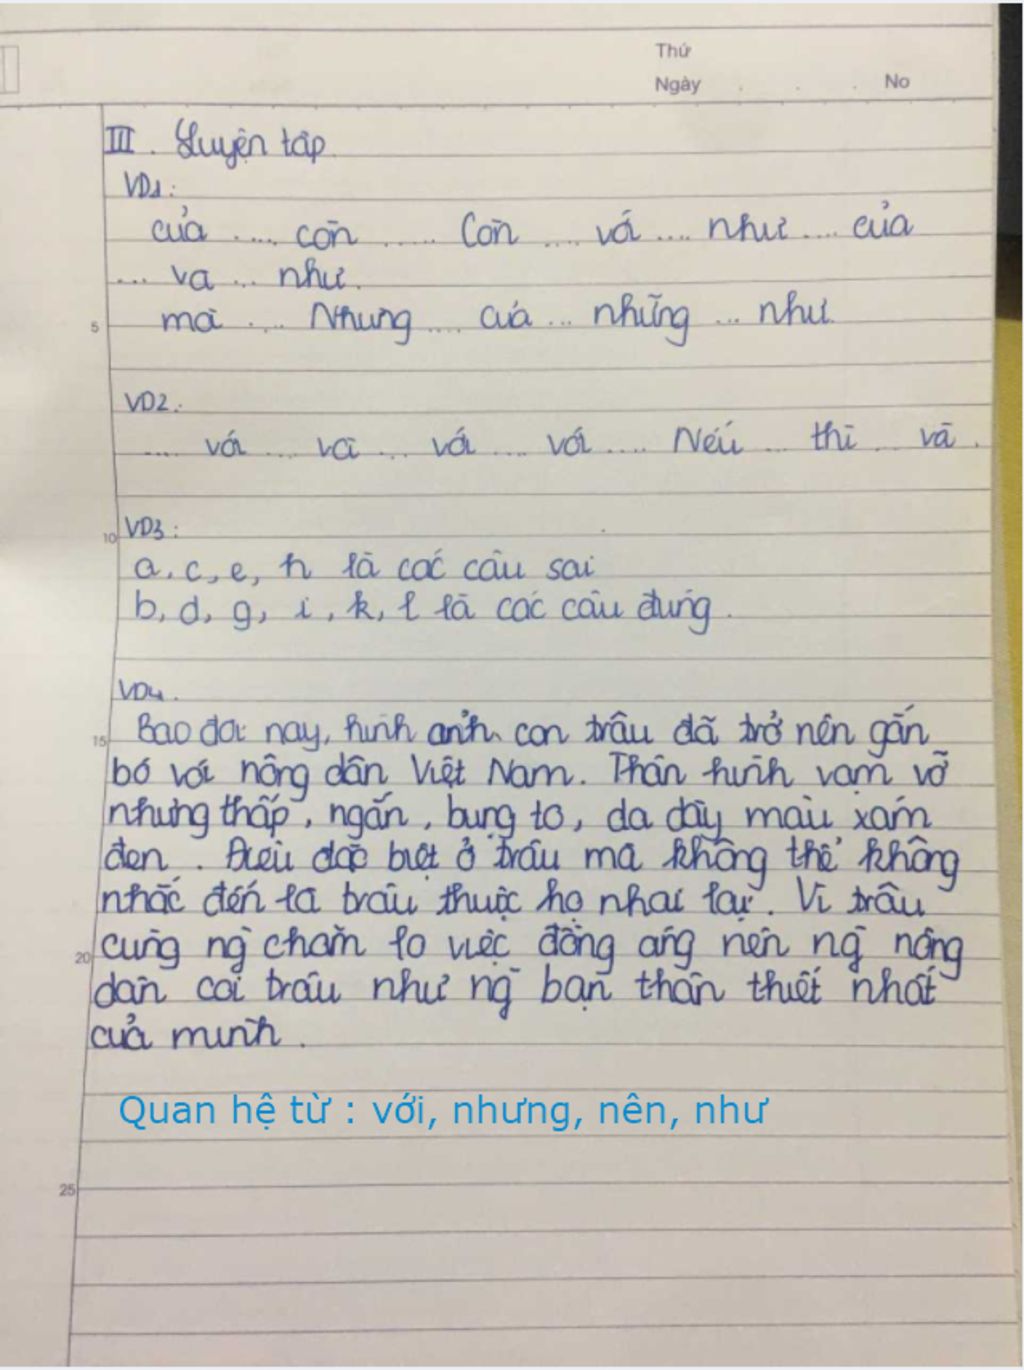 Thứ
Ngày . . . No
III. Luyện tập
VD1:
của .... còn ..... Còn .... với .... như .... của
... và ... như.
mà .... Nhưng .... của ... những ... như
5
VD2:
.... với ... và ... với .... với .... Nếu ... thì ... và .
10
VD3:
a, c, e, h là các câu sai
b, d, g, i, k, l là các câu đúng.
VD4.
15
Bao đời nay, hình ảnh con trâu đã trở nên gắn
bó với nông dân Việt Nam. Thân hình vạm vỡ
nhưng thấp, ngắn, bụng to, da dày màu xám
đen. Điều đặc biệt ở trâu mà không thể không
nhắc đến là trâu thuộc họ nhai lại. Vì trâu
20
cùng ng` chăm lo việc đồng áng nên ng` nông
dân coi trâu như ng` bạn thân thiết nhất
của mình.
Quan hệ từ : với, nhưng, nên, như
25